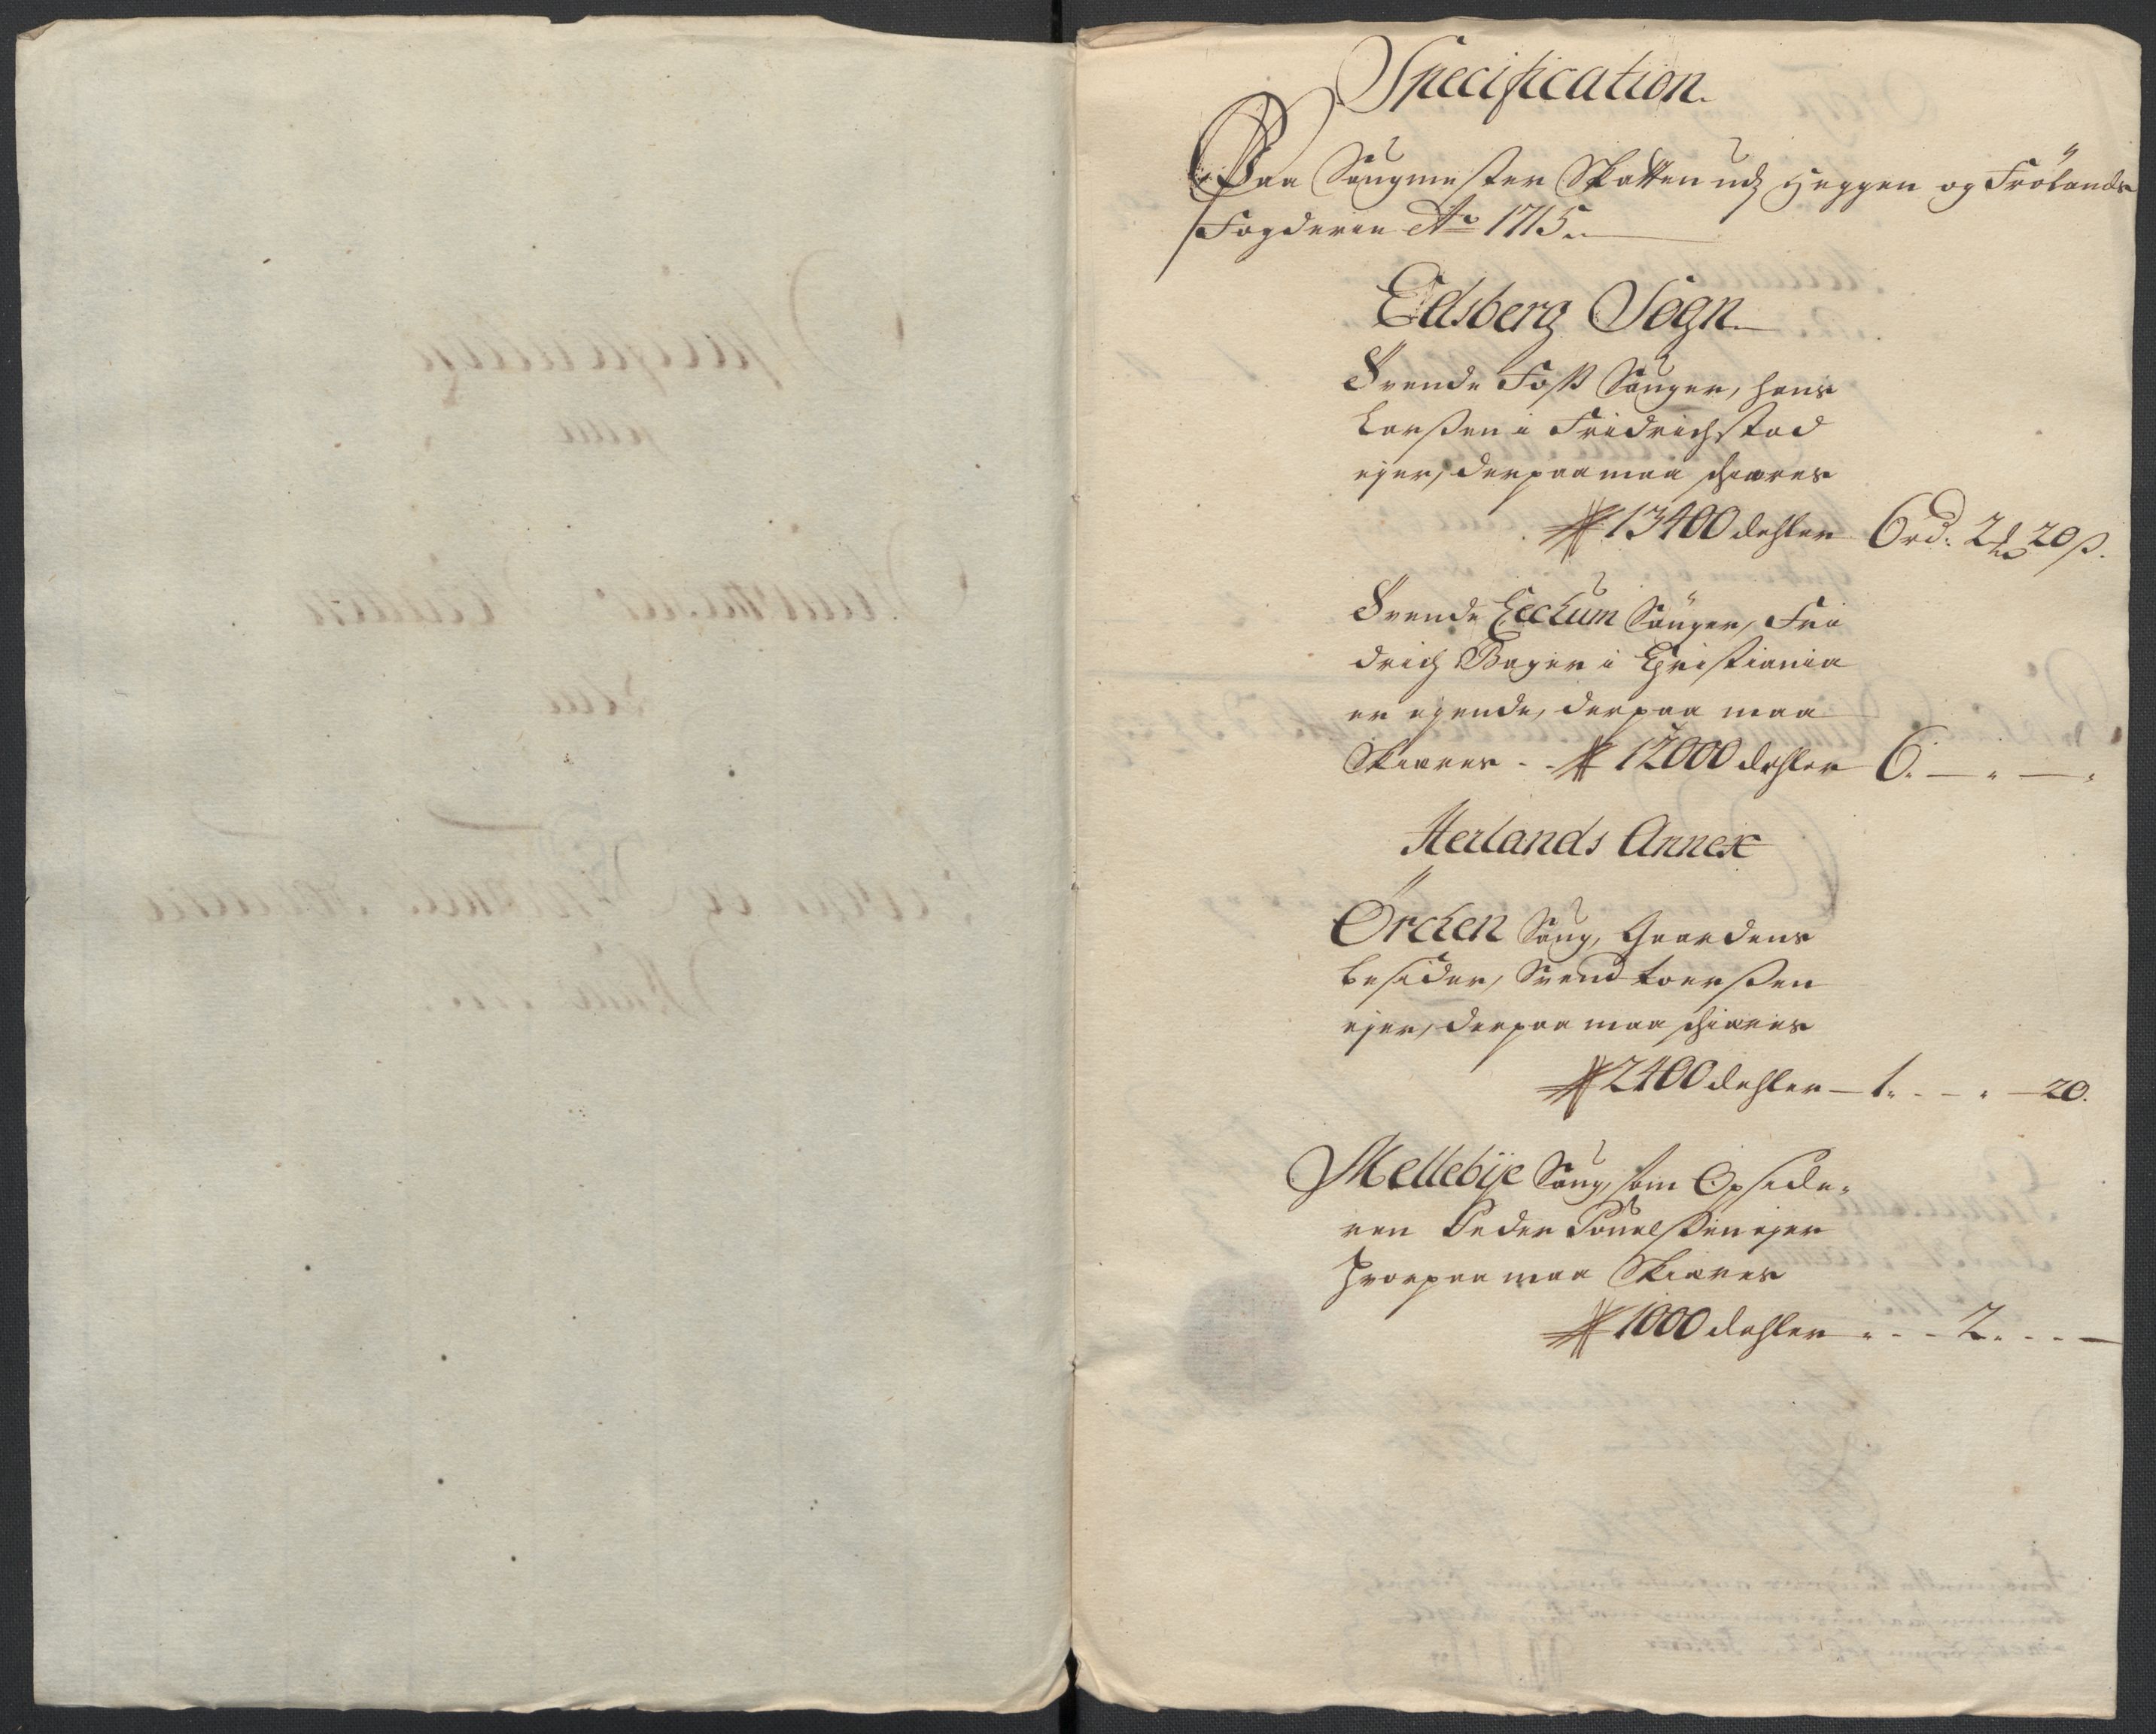 Specification.
Paa Saugmester Skatten udj Heggen og Frølands
Fogderie Ao 1715
Edsberg Sogn
Trende Foss Sauger, Hans
Larssen i Fridrichstad
ejer, derpaa maa schieres
13400 dehler 6 rd. 2 20 ß.
Trende Eeckum Sauger, Fri
drich Bager i Christiania
er ejende, derpaa maa
Skieres 12000 dehler 6.
Herlands Annex
Ørchen Saug, Gaardens
besider, Svend Larssen
ejer, derpaa maa schieres
2400 dehler 1. 20.
Mellebÿe Saug, som Opside-
ren Peder Pouelssen ejer
hvorpaa maa Skieres
1000 dehler 2.